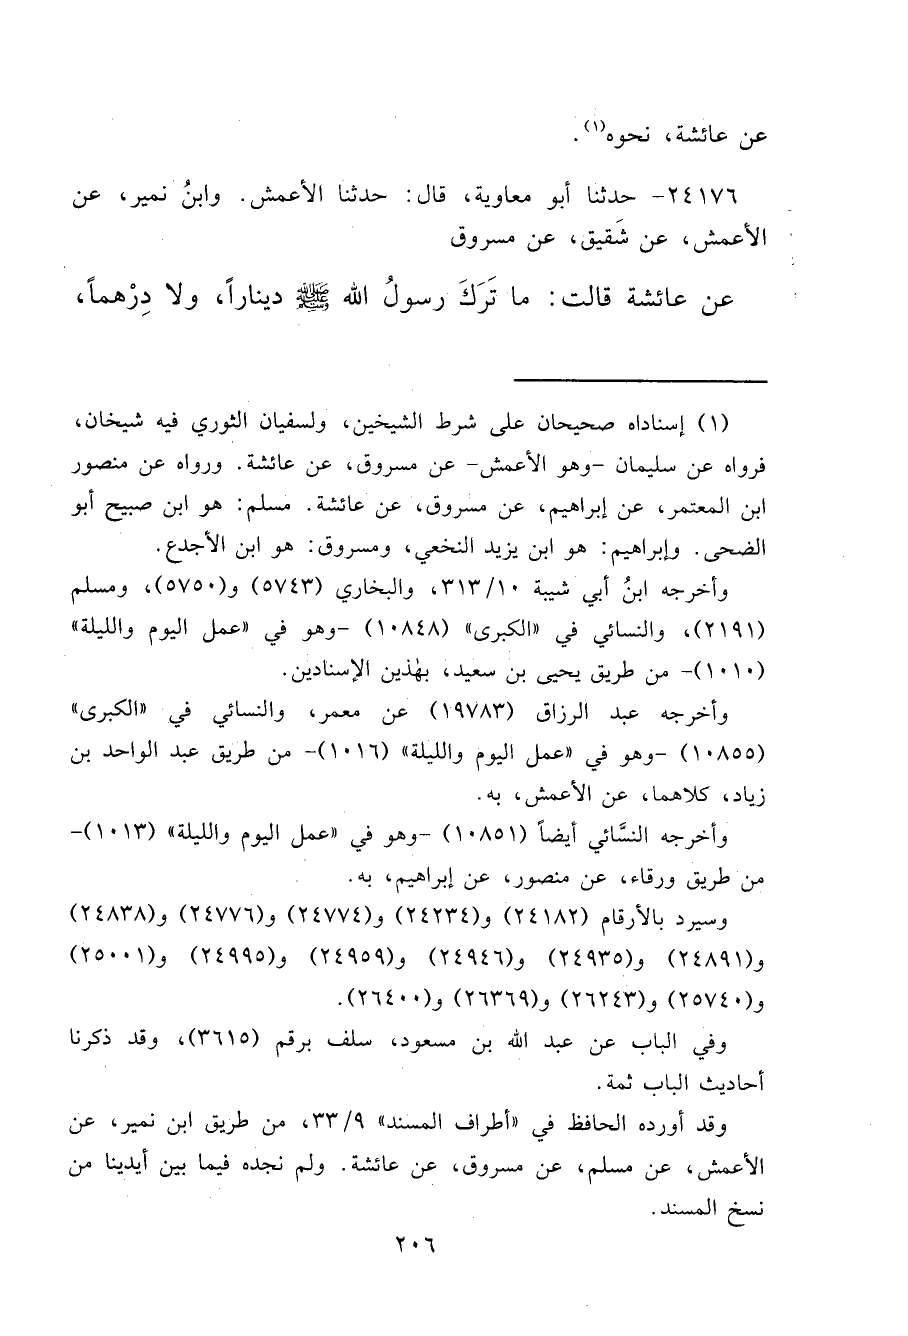 عن عائشة، نحوه(١).
٢٤١٧٦- حدثنا أبو معاوية، قال: حدثنا الأعمش. وابنُ نمير، عن
الأعمش، عن شَقيق، عن مسروق
عن عائشة قالت: ما تَرَكَ رسولُ الله ﷺ ديناراً، ولا دِرْهماً،
(١) إسناداه صحيحان على شرط الشيخين، ولسفيان الثوري فيه شيخان،
فرواه عن سليمان -وهو الأعمش- عن مسروق، عن عائشة. ورواه عن منصور
ابن المعتمر، عن إبراهيم، عن مسروق، عن عائشة. مسلم: هو ابن صبيح أبو
الضحى. وإبراهيم: هو ابن يزيد النخعي، ومسروق: هو ابن الأجدع.
وأخرجه ابنُ أبي شيبة ٣١٣/١٠، والبخاري (٥٧٤٣) و(٥٧٥٠)، ومسلم
(٢١٩١)، والنسائي في «الكبرى» (١٠٨٤٨) -وهو في «عمل اليوم والليلة»
(١٠١٠)- من طريق يحيى بن سعيد، بهٰذين الإسنادين.
وأخرجه عبد الرزاق (١٩٧٨٣) عن معمر، والنسائي في «الكبرى»
(١٠٨٥٥) -وهو في «عمل اليوم والليلة» (١٠١٦)- من طريق عبد الواحد بن
زياد، كلاهما، عن الأعمش، به.
وأخرجه النسَّائي أيضاً (١٠٨٥١) -وهو في «عمل اليوم والليلة» (١٠١٣)-
من طريق ورقاء، عن منصور، عن إبراهيم، به.
وسيرد بالأرقام (٢٤١٨٢) و(٢٤٢٣٤) و(٢٤٧٧٤) و(٢٤٧٧٦) و(٢٤٨٣٨)
و(٢٤٨٩١) و(٢٤٩٣٥) و(٢٤٩٤٦) و(٢٤٩٥٩) و(٢٤٩٩٥) و(٢٥٠٠١)
و(٢٥٧٤٠) و(٢٦٢٤٣) و(٢٦٣٦٩) و(٢٦٤٠٠).
وفي الباب عن عبد الله بن مسعود، سلف برقم (٣٦١٥)، وقد ذكرنا
أحاديث الباب ثمة.
وقد أورده الحافظ في «أطراف المسند» ٣٣/٩، من طريق ابن نمير، عن
الأعمش، عن مسلم، عن مسروق، عن عائشة. ولم نجده فيما بين أيدينا من
نسخ المسند.
٢٠٦